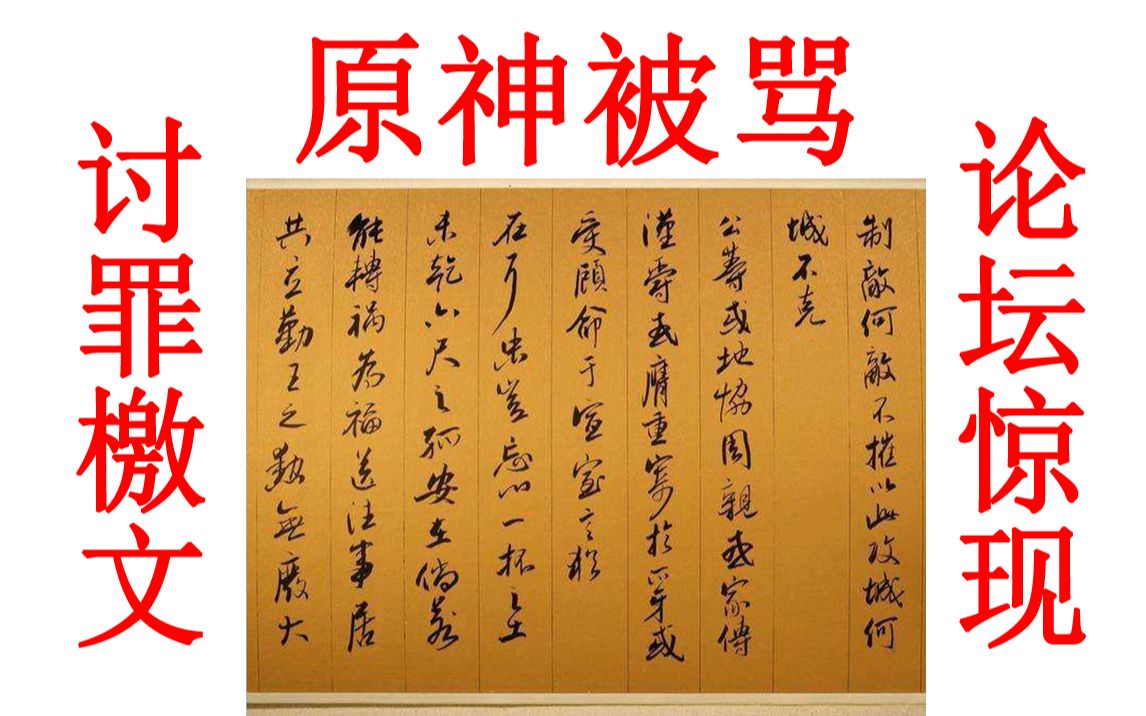 原神被骂
论坛惊现
讨罪檄文
制敵何敵不摧以此攻城何
城不克
公等或地協周親或家傳
漢爵或膺重寄於爪牙或
受顧命于宣室言猶
在耳忠豈忘心一抔之土
未乾六尺之孤安在倘若
能轉禍為福送往事居
共立勤王之勲無廢大